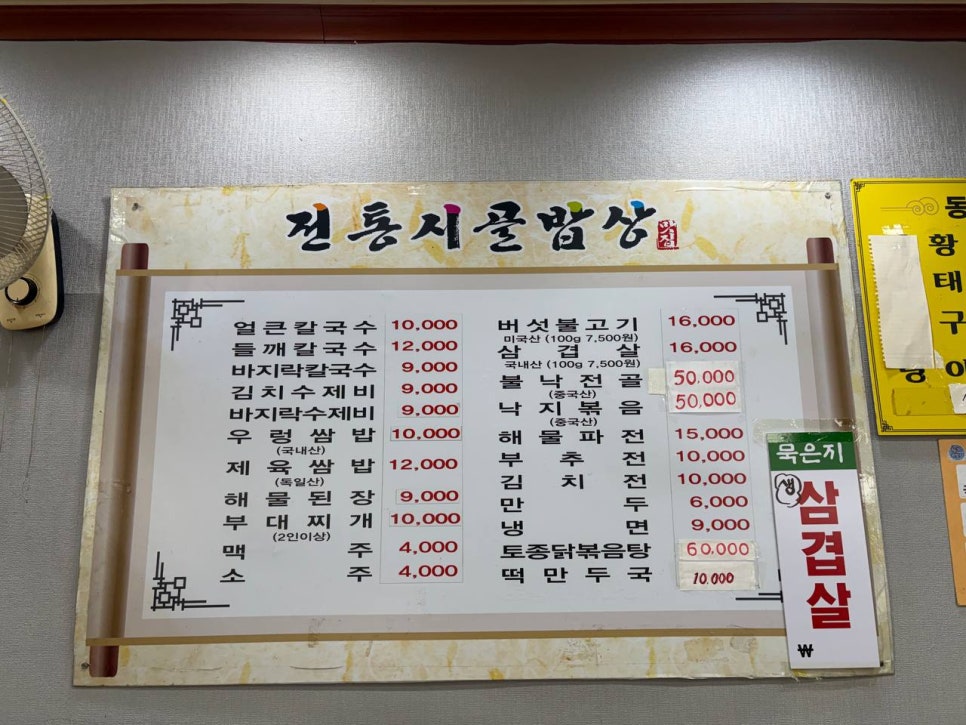 전통시골밥상 맛집
얼큰칼국수 10,000
들깨칼국수 12,000
바지락칼국수 9,000
김치수제비 9,000
바지락수제비 9,000
우렁쌈밥 10,000
(국내산)
제육쌈밥 12,000
(독일산)
해물된장 9,000
부대찌개 10,000
(2인이상)
맥주 4,000
소주 4,000
버섯불고기 16,000
미국산 (100g 7,500원)
삼겹살 16,000
국내산 (100g 7,500원)
불낙전골 50,000
(중국산)
낙지볶음 50,000
(중국산)
해물파전 15,000
부추전 10,000
김치전 10,000
만두 6,000
냉면 9,000
토종닭볶음탕 60,000
떡만두국 10,000
묵은지
생
삼겹살
₩
동
황
태
구